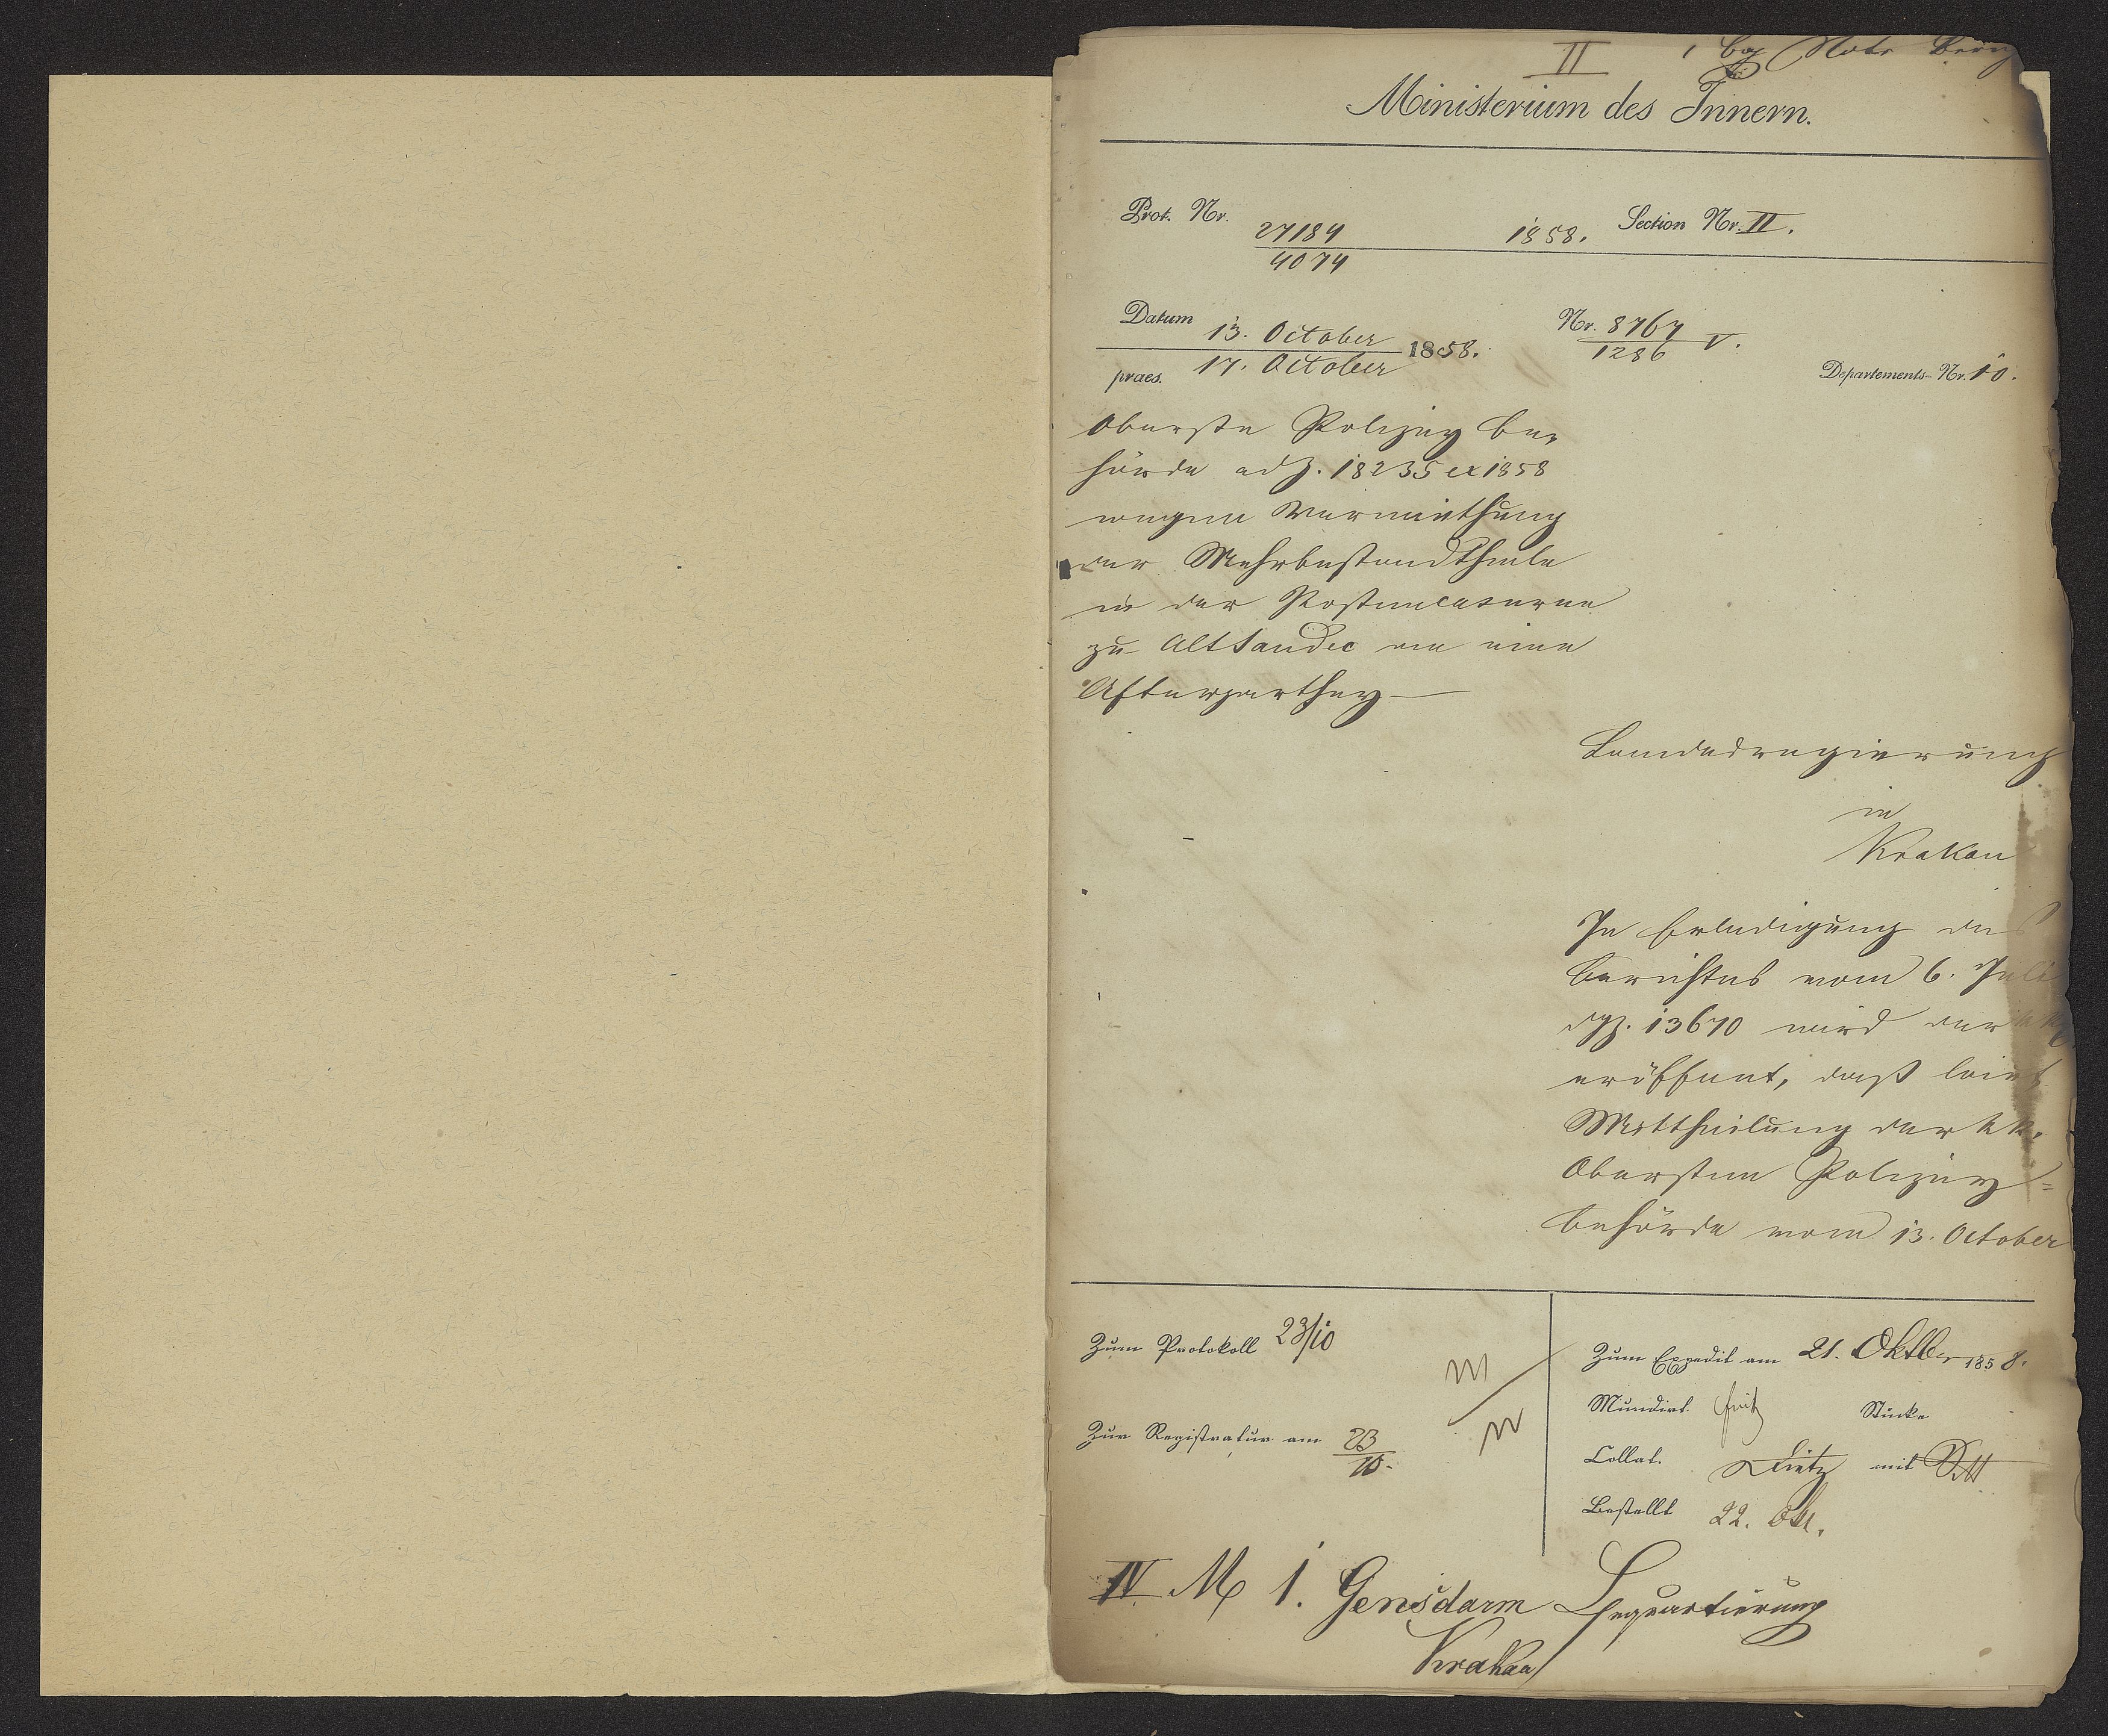 II
Ministerium des Innern.
Prot. Nr. 27184 / 4074 1858. Section Nr. II.
Datum 13. October 1858. Nr. 8767 / 1286 V.
praes. 17. October Departements-Nr. 10.
Oberste Polizey Be-
hörde adz. 18235 ex 1858
wegen Vermiethung
der Mehrbestandtheile
in der Postencaserne
zu AltSandec an eine
Afterparthey
Landesregierung
in
Krakau
In Erledigung des
Berichtes vom 6. Juli
dgz. 13670 wird der
eröffnet, daß laut
Mittheilung der kk.
Obersten Polizey=
behörde vom 13. October
Zum Protokoll 23/10
Zum Expedit am 21. Oktbr 1858.
Mundirt Stücke
Zur Registratur am 23/10.
Collat. mit
Bestellt 22. Okt.
IV M 1. Gensdarm Bequartierung
Krakau